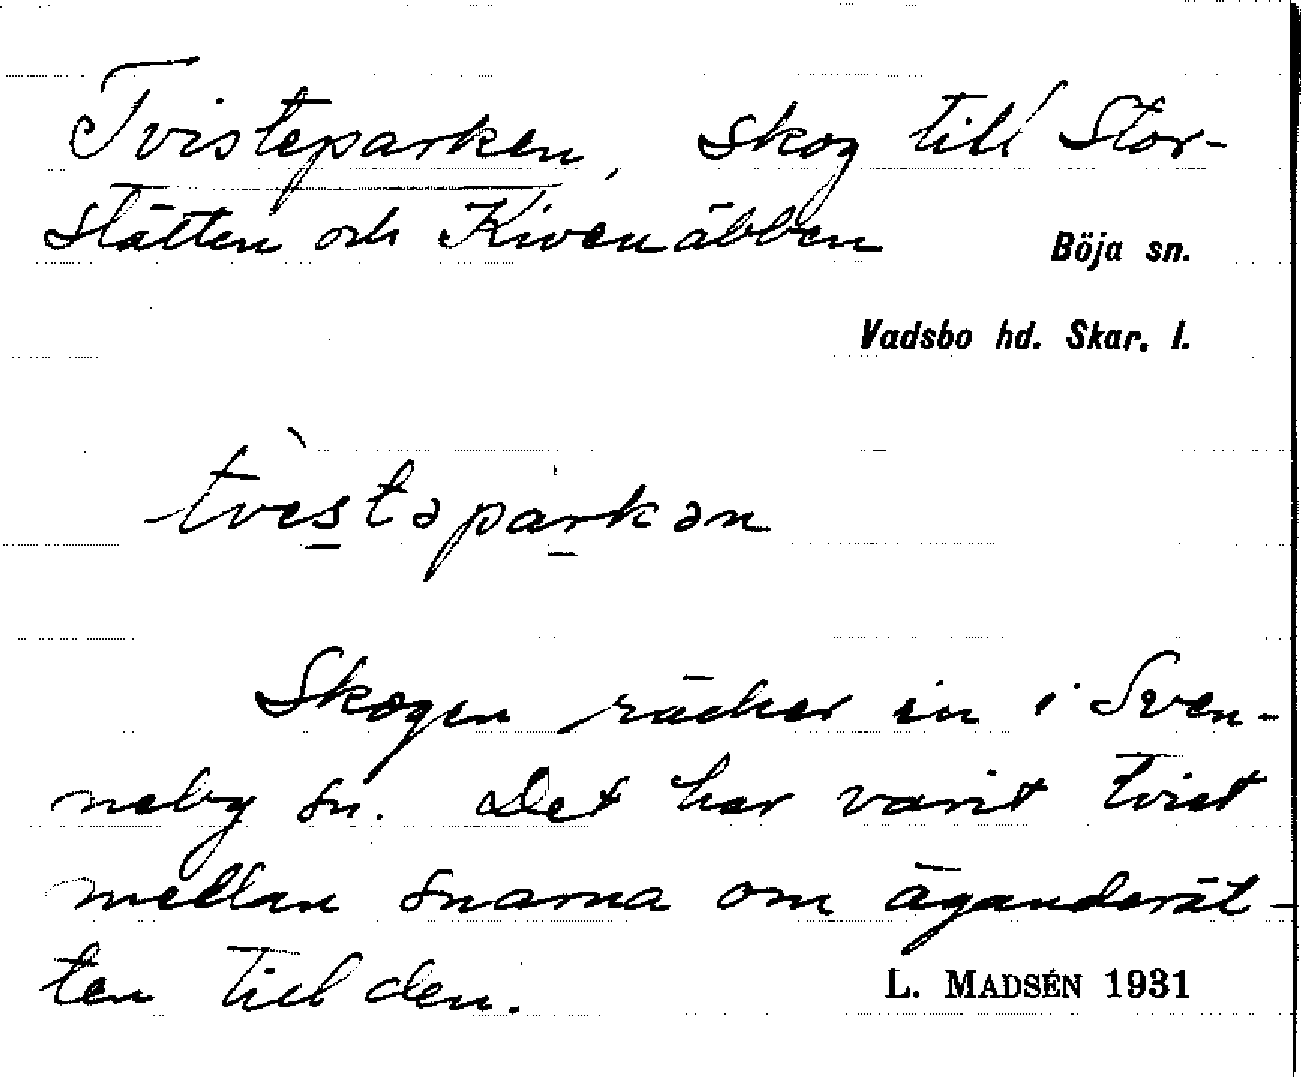 Tvisteparken, skog till Stor-
stätten och Kivenäbben
Böja sn.
Vadsbo hd. Skar. l.
tvèstəparkən
Skogen räcker in i Sven-
neby sn. Det har varit tvist
mellan snarna om äganderät-
ten till den.
L. MADSÉN 1931